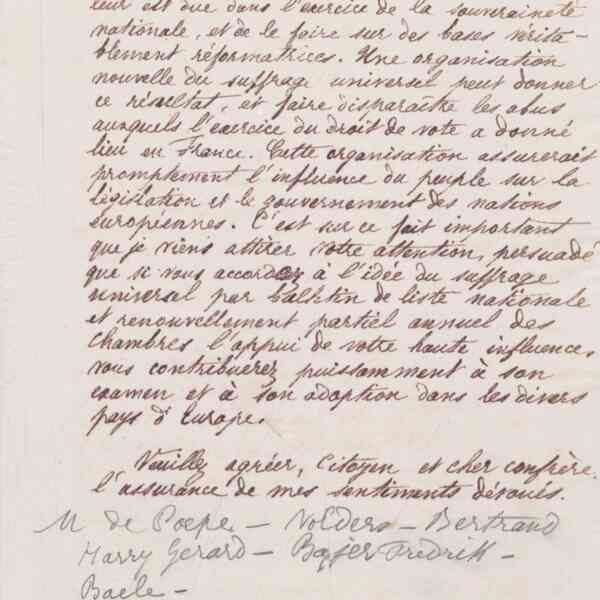 leur est due dans l'exercice de la souveraineté
nationale, et de le faire sur des bases vérita-
blement réformatrices. Une organisation
nouvelle du suffrage universel peut donner
ce résultat, et faire disparaître les abus
auxquels l'exercice du droit de vote a donné
lieu en France. Cette organisation assurerait
promptement l'influence du peuple sur la
législation et le gouvernement des nations
européennes. C'est sur ce fait important
que je viens attirer votre attention, persuadé
que si vous accordez à l'idée du suffrage
universel par bulletin de liste nationale
et renouvellement partiel annuel des
Chambres l'appui de votre haute influence,
vous contribuerez puissamment à son
examen et à son adoption dans les divers
pays d'Europe.
Veuillez agréer, Citoyen et cher confrère,
l'assurance de mes sentiments dévoués.
M de Paepe - Volders - Bertrand
Harry Gerard - Bajer Fredrik -